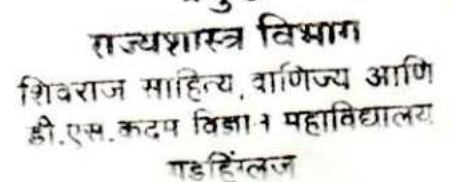 राज्यशास्त्र विभाग
शिवराज साहित्य, वाणिज्य आणि
डी.एस. कदम विज्ञान महाविद्यालय
गडहिंग्लज